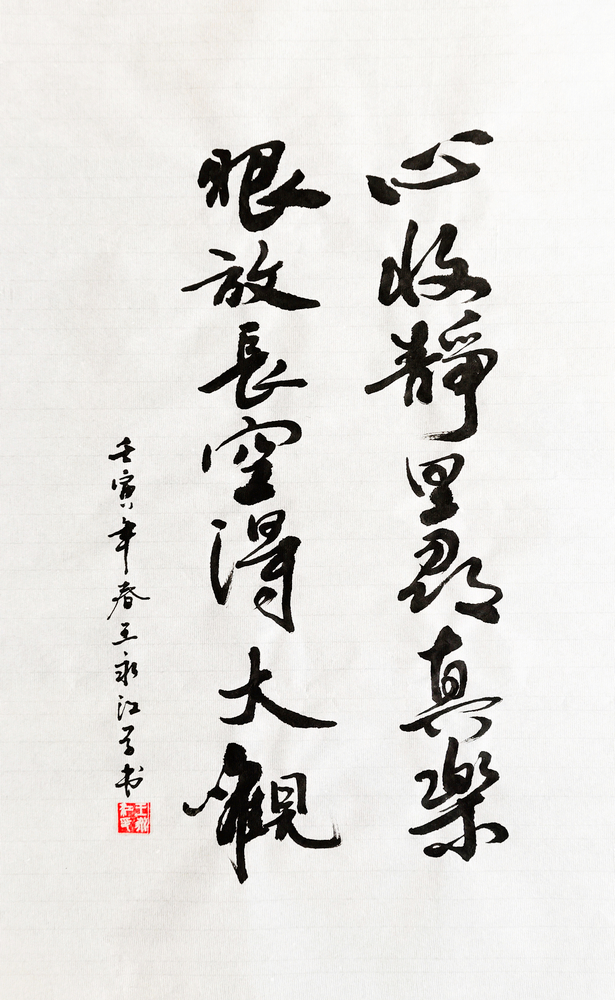 心收静里寻真樂
眼放長空得大觀
壬寅年春王永江书